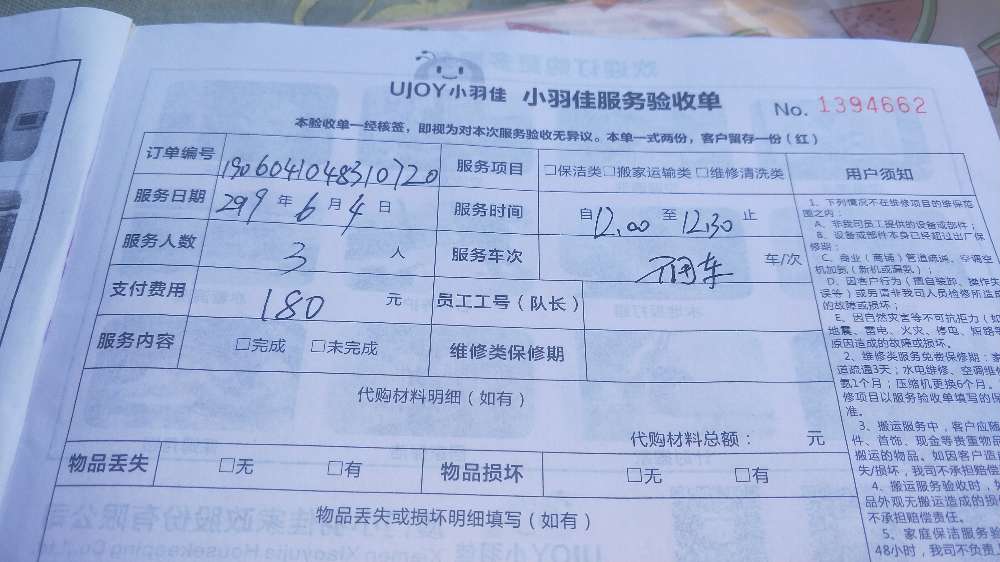 UJOY小羽佳 小羽佳服务验收单 No. 1394662
本验收单一经核签，即视为对本次服务验收无异议。本单一式两份，客户留存一份（红）
订单编号 1906041048310720 服务项目 □保洁类□搬家运输类□维修清洗类 用户须知
服务日期 2019年6月4日 服务时间 自12.00至12.30止
服务人数 3人 服务车次 不用车 车/次
支付费用 180元 员工工号（队长）
服务内容 □完成 □未完成 维修类保修期
代购材料明细（如有）
代购材料总额： 元
物品丢失 □无 □有 物品损坏 □无 □有
物品丢失或损坏明细填写（如有）
1、下列情况不在维修项目的维保范
围之内：
A、非我司员工提供的设备或部件；
B、设备或部件本身已经超过出厂保
修期；
C、商业（商铺）管道疏通、空调空
机加氨（新机或漏氨）；
D、因客户行为（擅自装卸、操作失
误等）或另请非我司人员检修所造成
的故障或损坏；
E、因自然灾害等不可抗拒力（如
地震、雷电、火灾、停电、短路等
原因造成的故障或损坏。
2、维修类服务免费保修期：
道疏通3天；水电维修、空调维修
氨1个月；压缩机更换6个月。
修项目以服务验收单填写的保
准。
3、搬运服务中，客户应随
件、首饰、现金等贵重物品
搬运的物品。如因客户造
失/损坏，我司不承担赔偿
4、搬运服务验收时，
品外观无搬运造成的损
不承担赔偿责任。
5、家庭保洁服务验
48小时，我司不负责